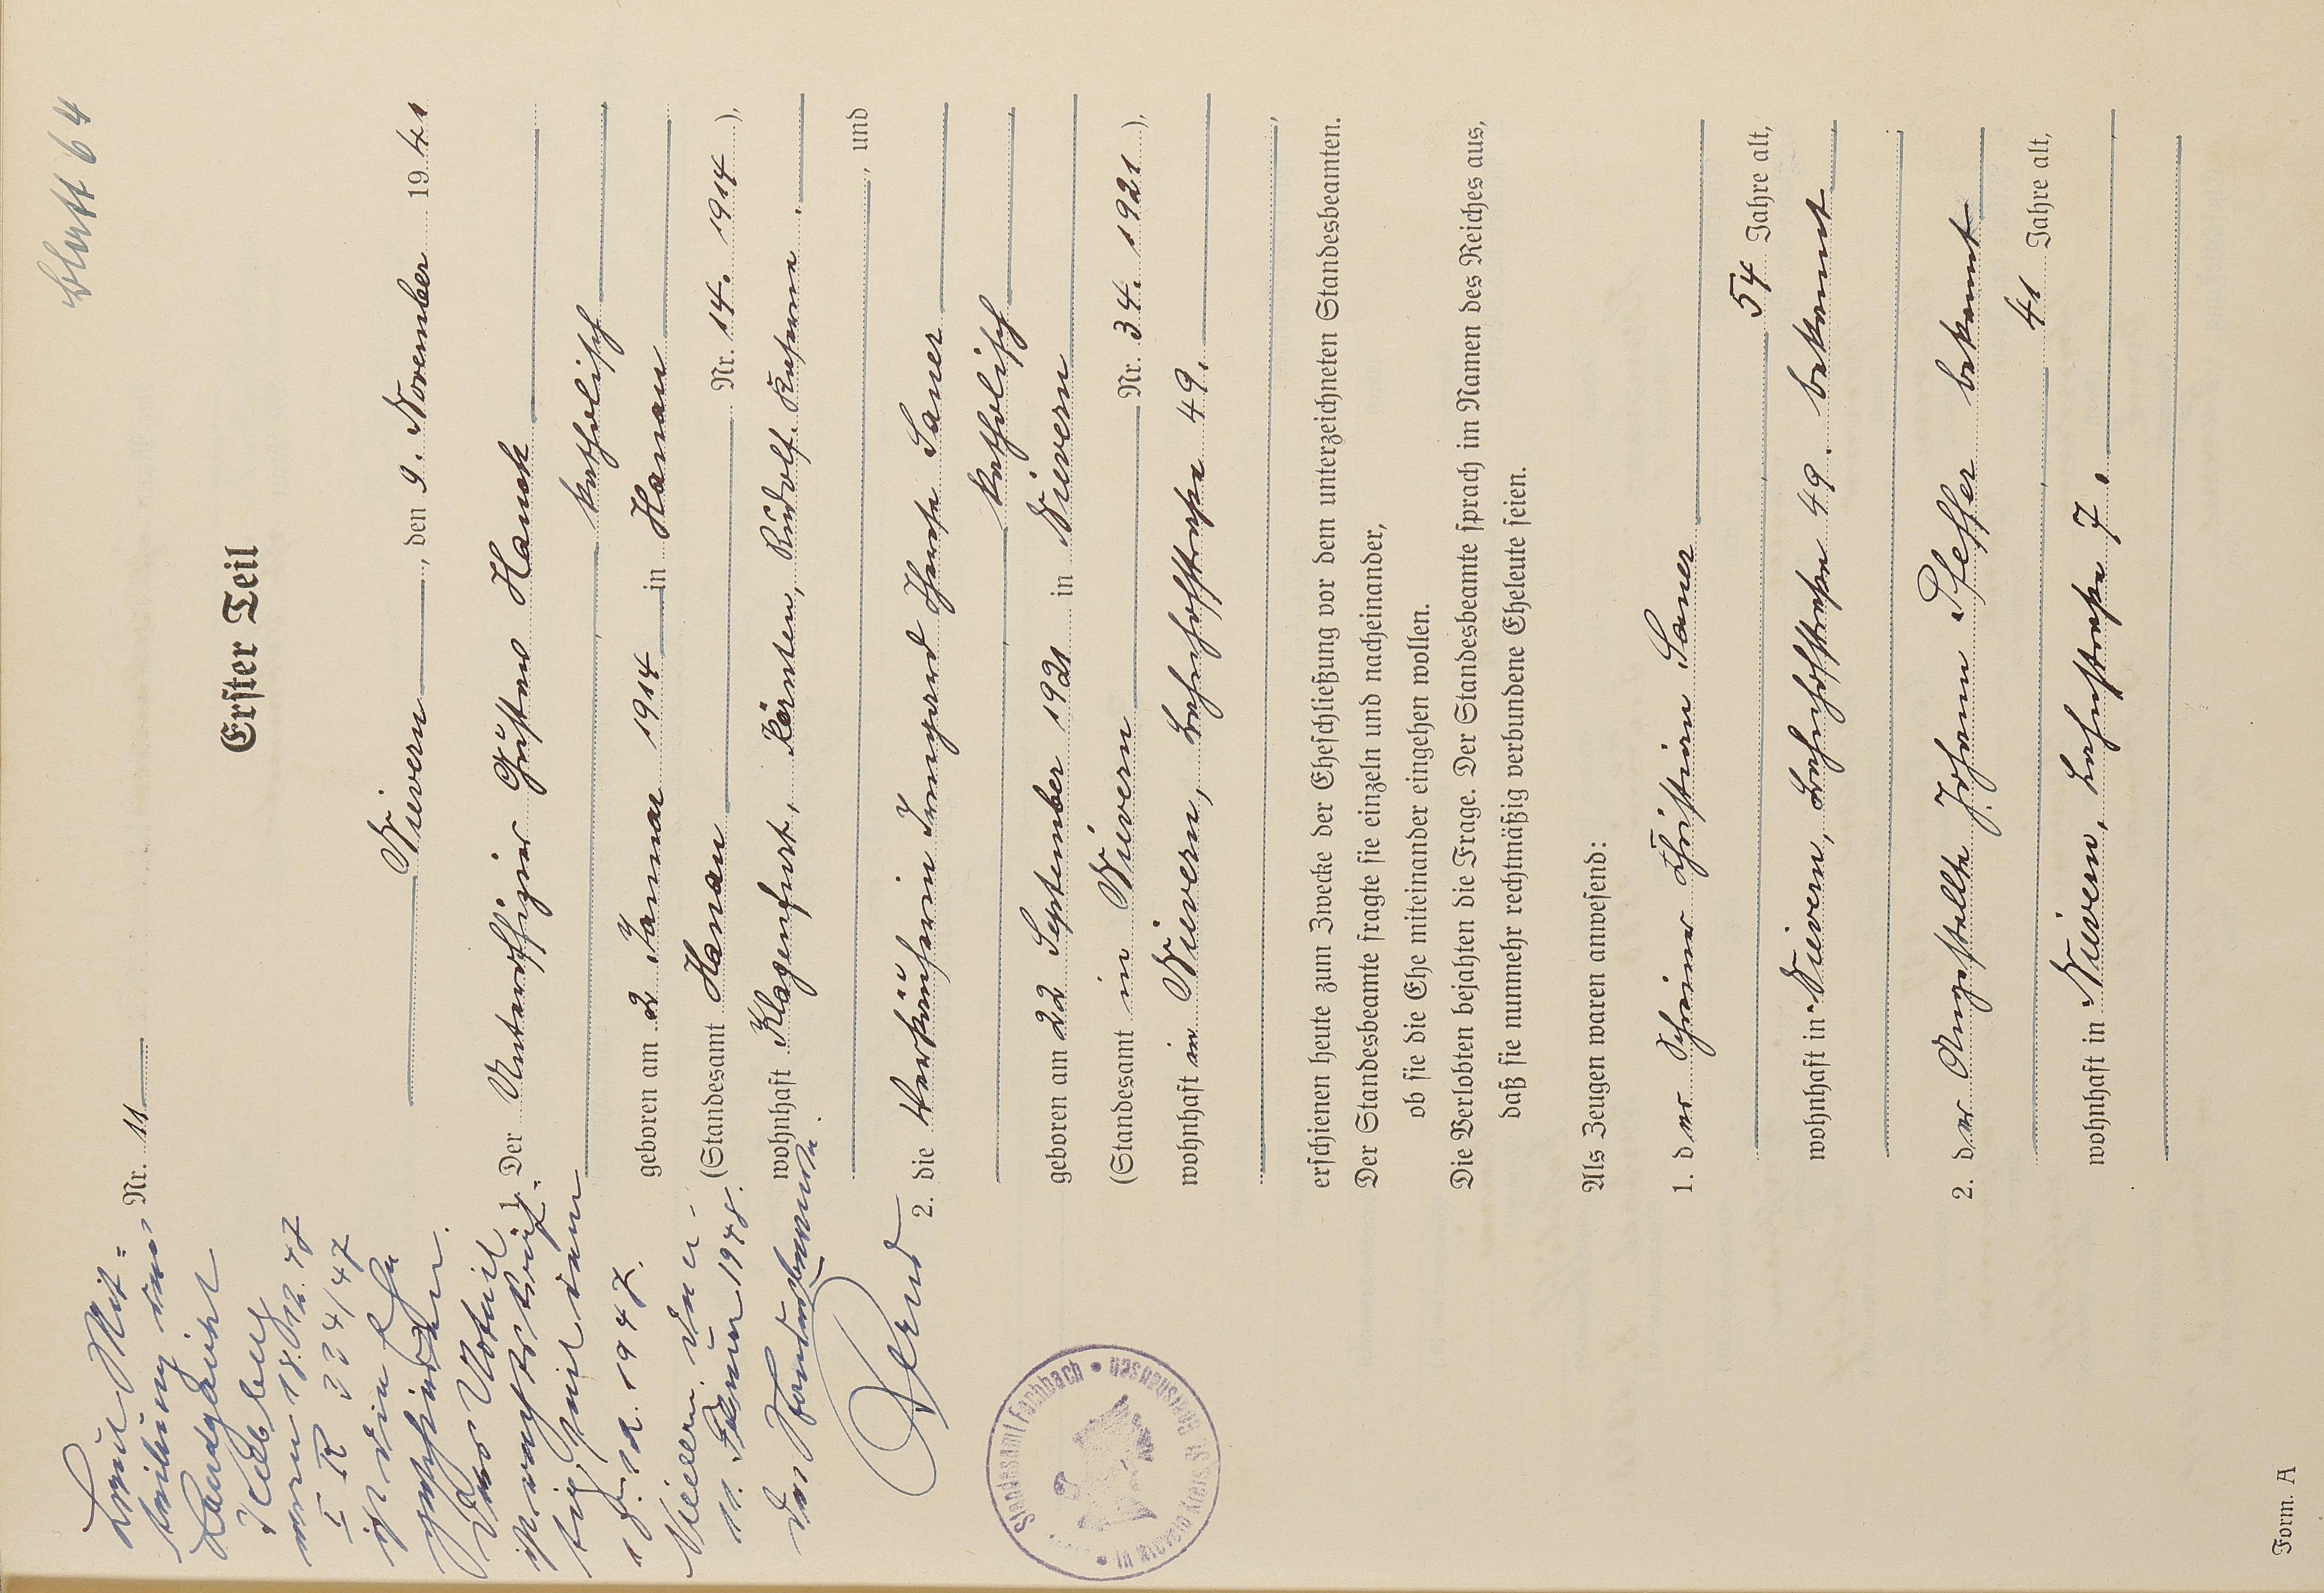 Blatt 64
Nr. 11
Erster Teil
Nievern, den 9. November 1941
1. Der Unteroffizier Gustav Hanack
katholisch
geboren am 2 Januar 1914 in Hanau
(Standesamt Hanau Nr. 14. 1914),
wohnhaft Klagenfurt, Kärnten, Rudolf. Kaserne.
, und
2. die Verkäuferin Irmgard Therese Sauer
katholisch
geboren am 22 September 1921 in Nievern
(Standesamt in Nievern Nr. 34. 1921),
wohnhaft in Nievern, Bahnhofstraße 49.
erschienen heute zum Zwecke der Eheschließung vor dem unterzeichneten Standesbeamten.
Der Standesbeamte fragte sie einzeln und nacheinander,
ob sie die Ehe miteinander eingehen wollen.
Die Verlobten bejahten die Frage. Der Standesbeamte sprach im Namen des Reiches aus,
daß sie nunmehr rechtmäßig verbundene Eheleute seien.
Als Zeugen waren anwesend:
1. der Schreiner Christian Sauer
54 Jahre alt,
wohnhaft in Nievern, Bahnhofstraße 49. bekannt
2. der Angestellte Johann Pfeffer bekannt
41 Jahre alt,
wohnhaft in Nievern, Bahnstraße 7.
Laut Mit=
teilung des
Landgericht
Koblenz
vom 18.12.47
I R 334/47
ist die Ehe
geschieden.
Das Urteil
ist rechtskräf-
tig seit dem
18.12.1947.
Nievern, den
11. Februar 1948.
Der Standesbeamte.
Standesamt Fachbach
in Nievern Kreis St. Goarshausen
Form. A